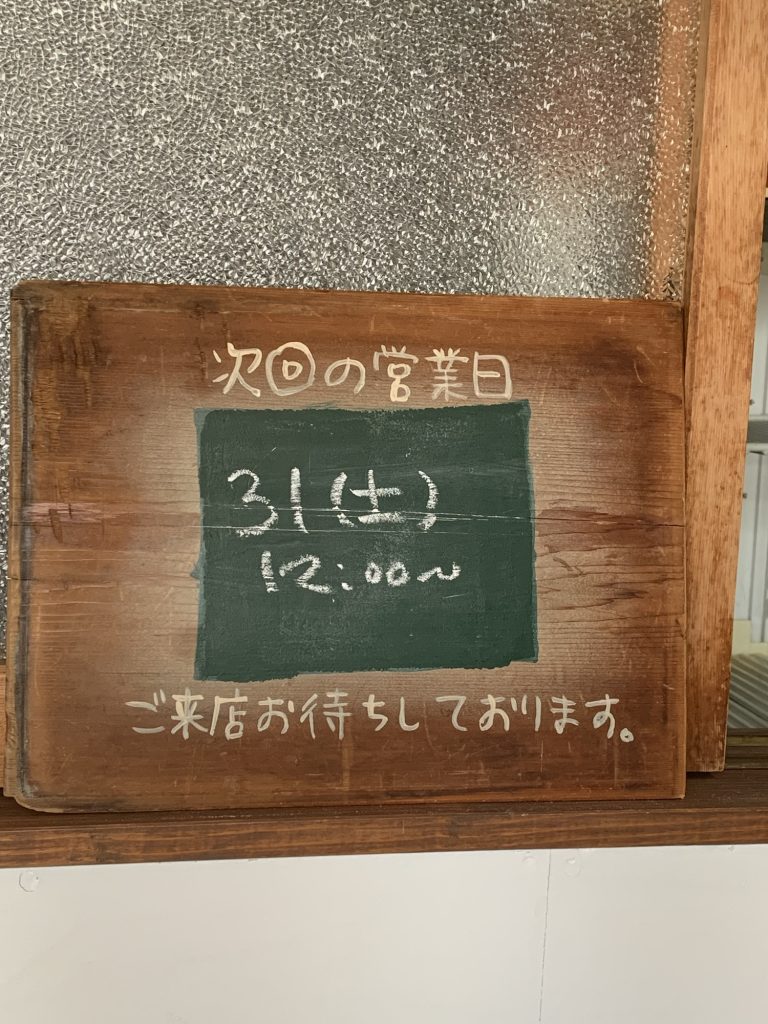 次回の営業日
31(土)
12:00~
ご来店お待ちしております。